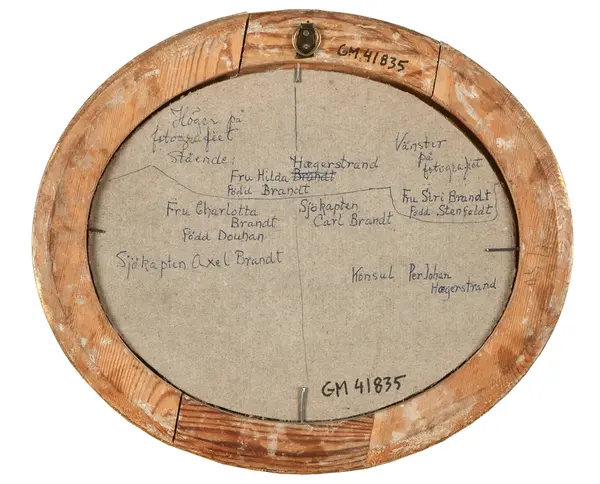 GM 41835
Höger på
fotografiet
Stående:
Hægerstrand
Fru Hilda Brandt
född Brandt
Vänster
på
fotografiet
Fru Siri Brandt
född Stenfeldt
Fru Charlotta
Brandt
född Douhan
Sjökapten
Carl Brandt
Sjökapten Axel Brandt
Konsul Per Johan
Hægerstrand
GM 41835